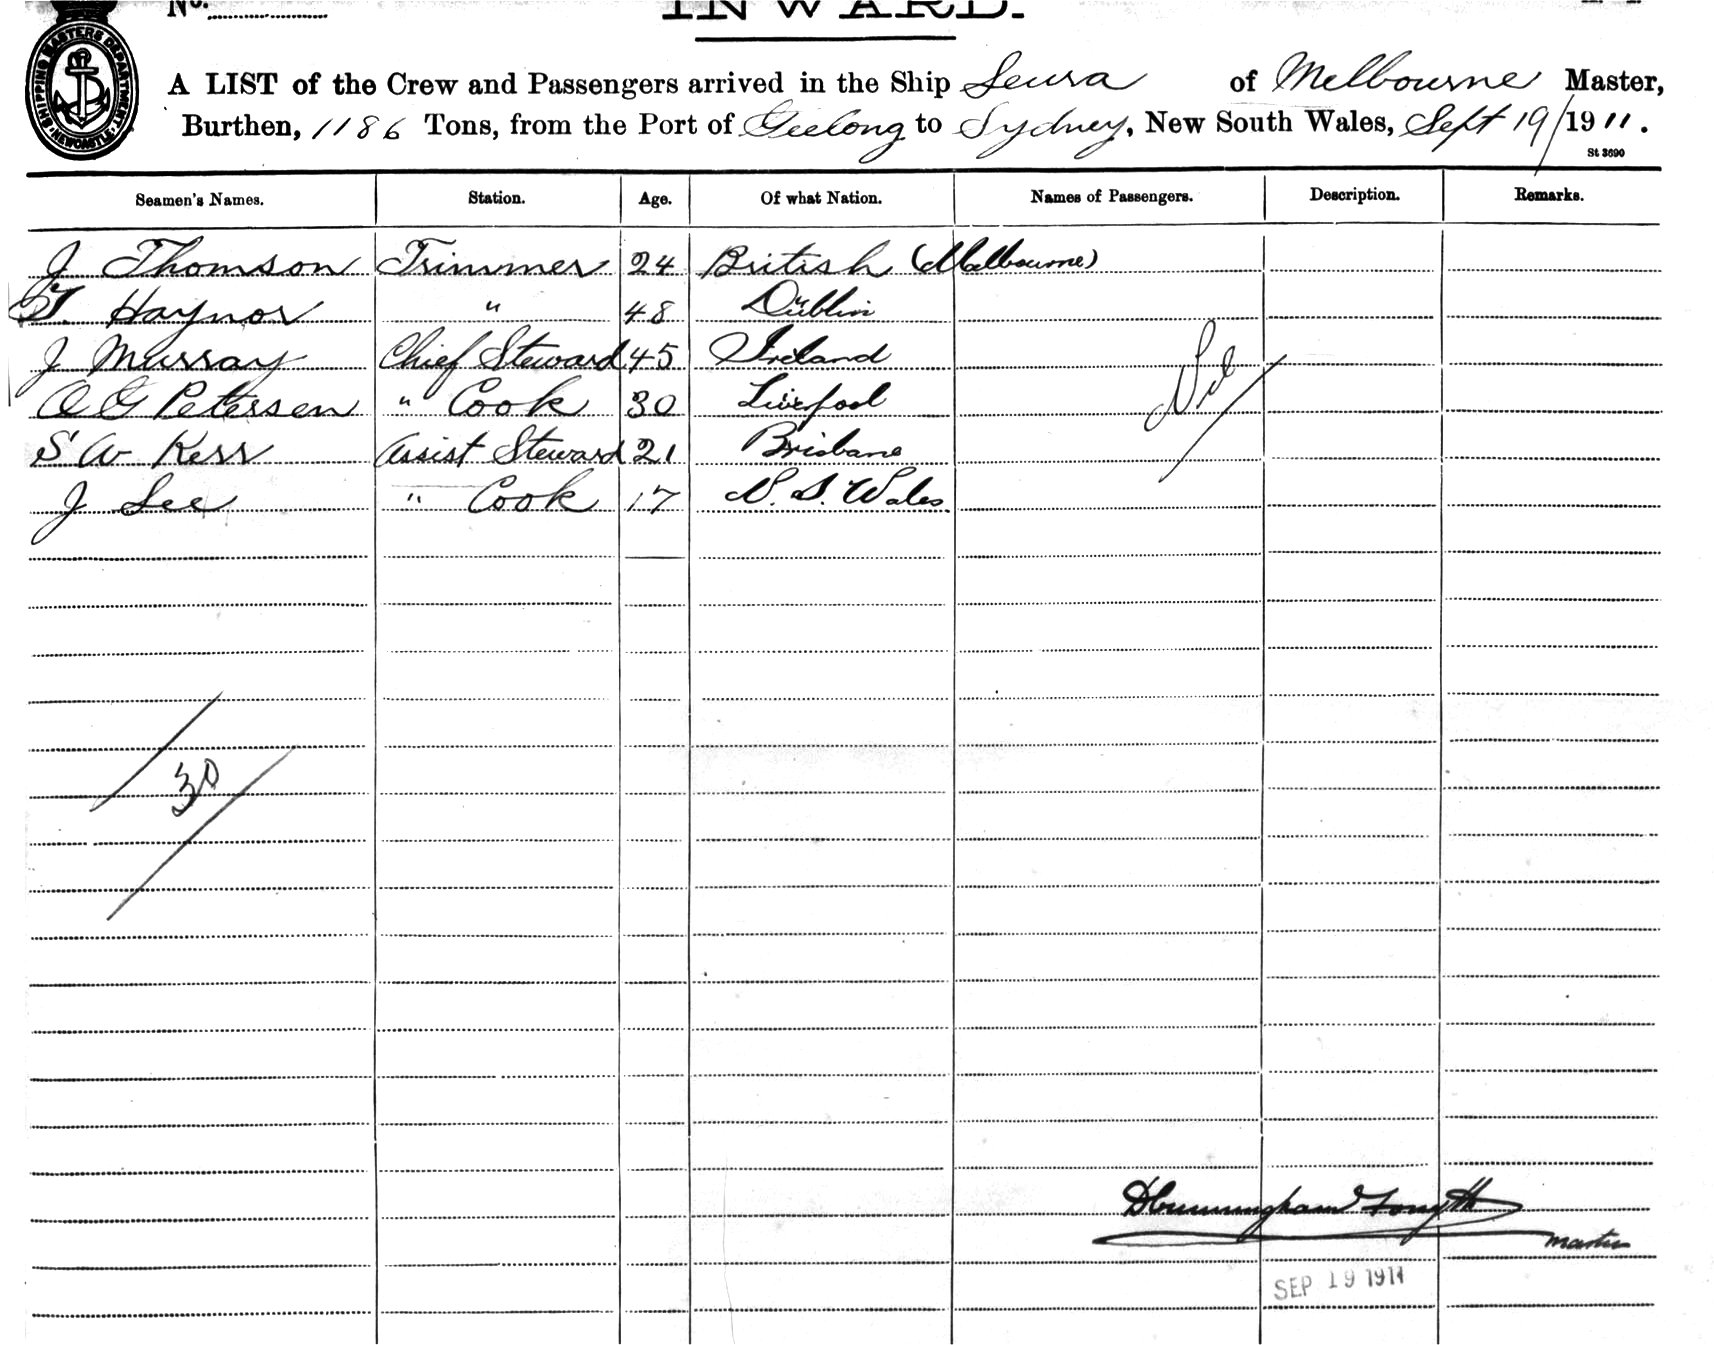 No.
INWARD.
SHIPPING MASTERS DEPARTMENT NEWCASTLE
A LIST of the Crew and Passengers arrived in the Ship Seura of Melbourne Master,
Burthen, 1186 Tons, from the Port of Geelong to Sydney, New South Wales, Sept 19/1911.
St 3690
Seamen's Names. Station. Age. Of what Nation. Names of Passengers. Description. Remarks.
J Thomson Trimmer 24 British (Melbourne)
T. Haynor " 48 Dublin
J Murray Chief Steward 45 Ireland
O G Petersen " Cook 30 Liverpool
S W Kerr Assist Steward 21 Brisbane
J Lee " Cook 17 N. S. Wales
Nil
30
D Cunningham Forsyth
master
SEP 19 1911